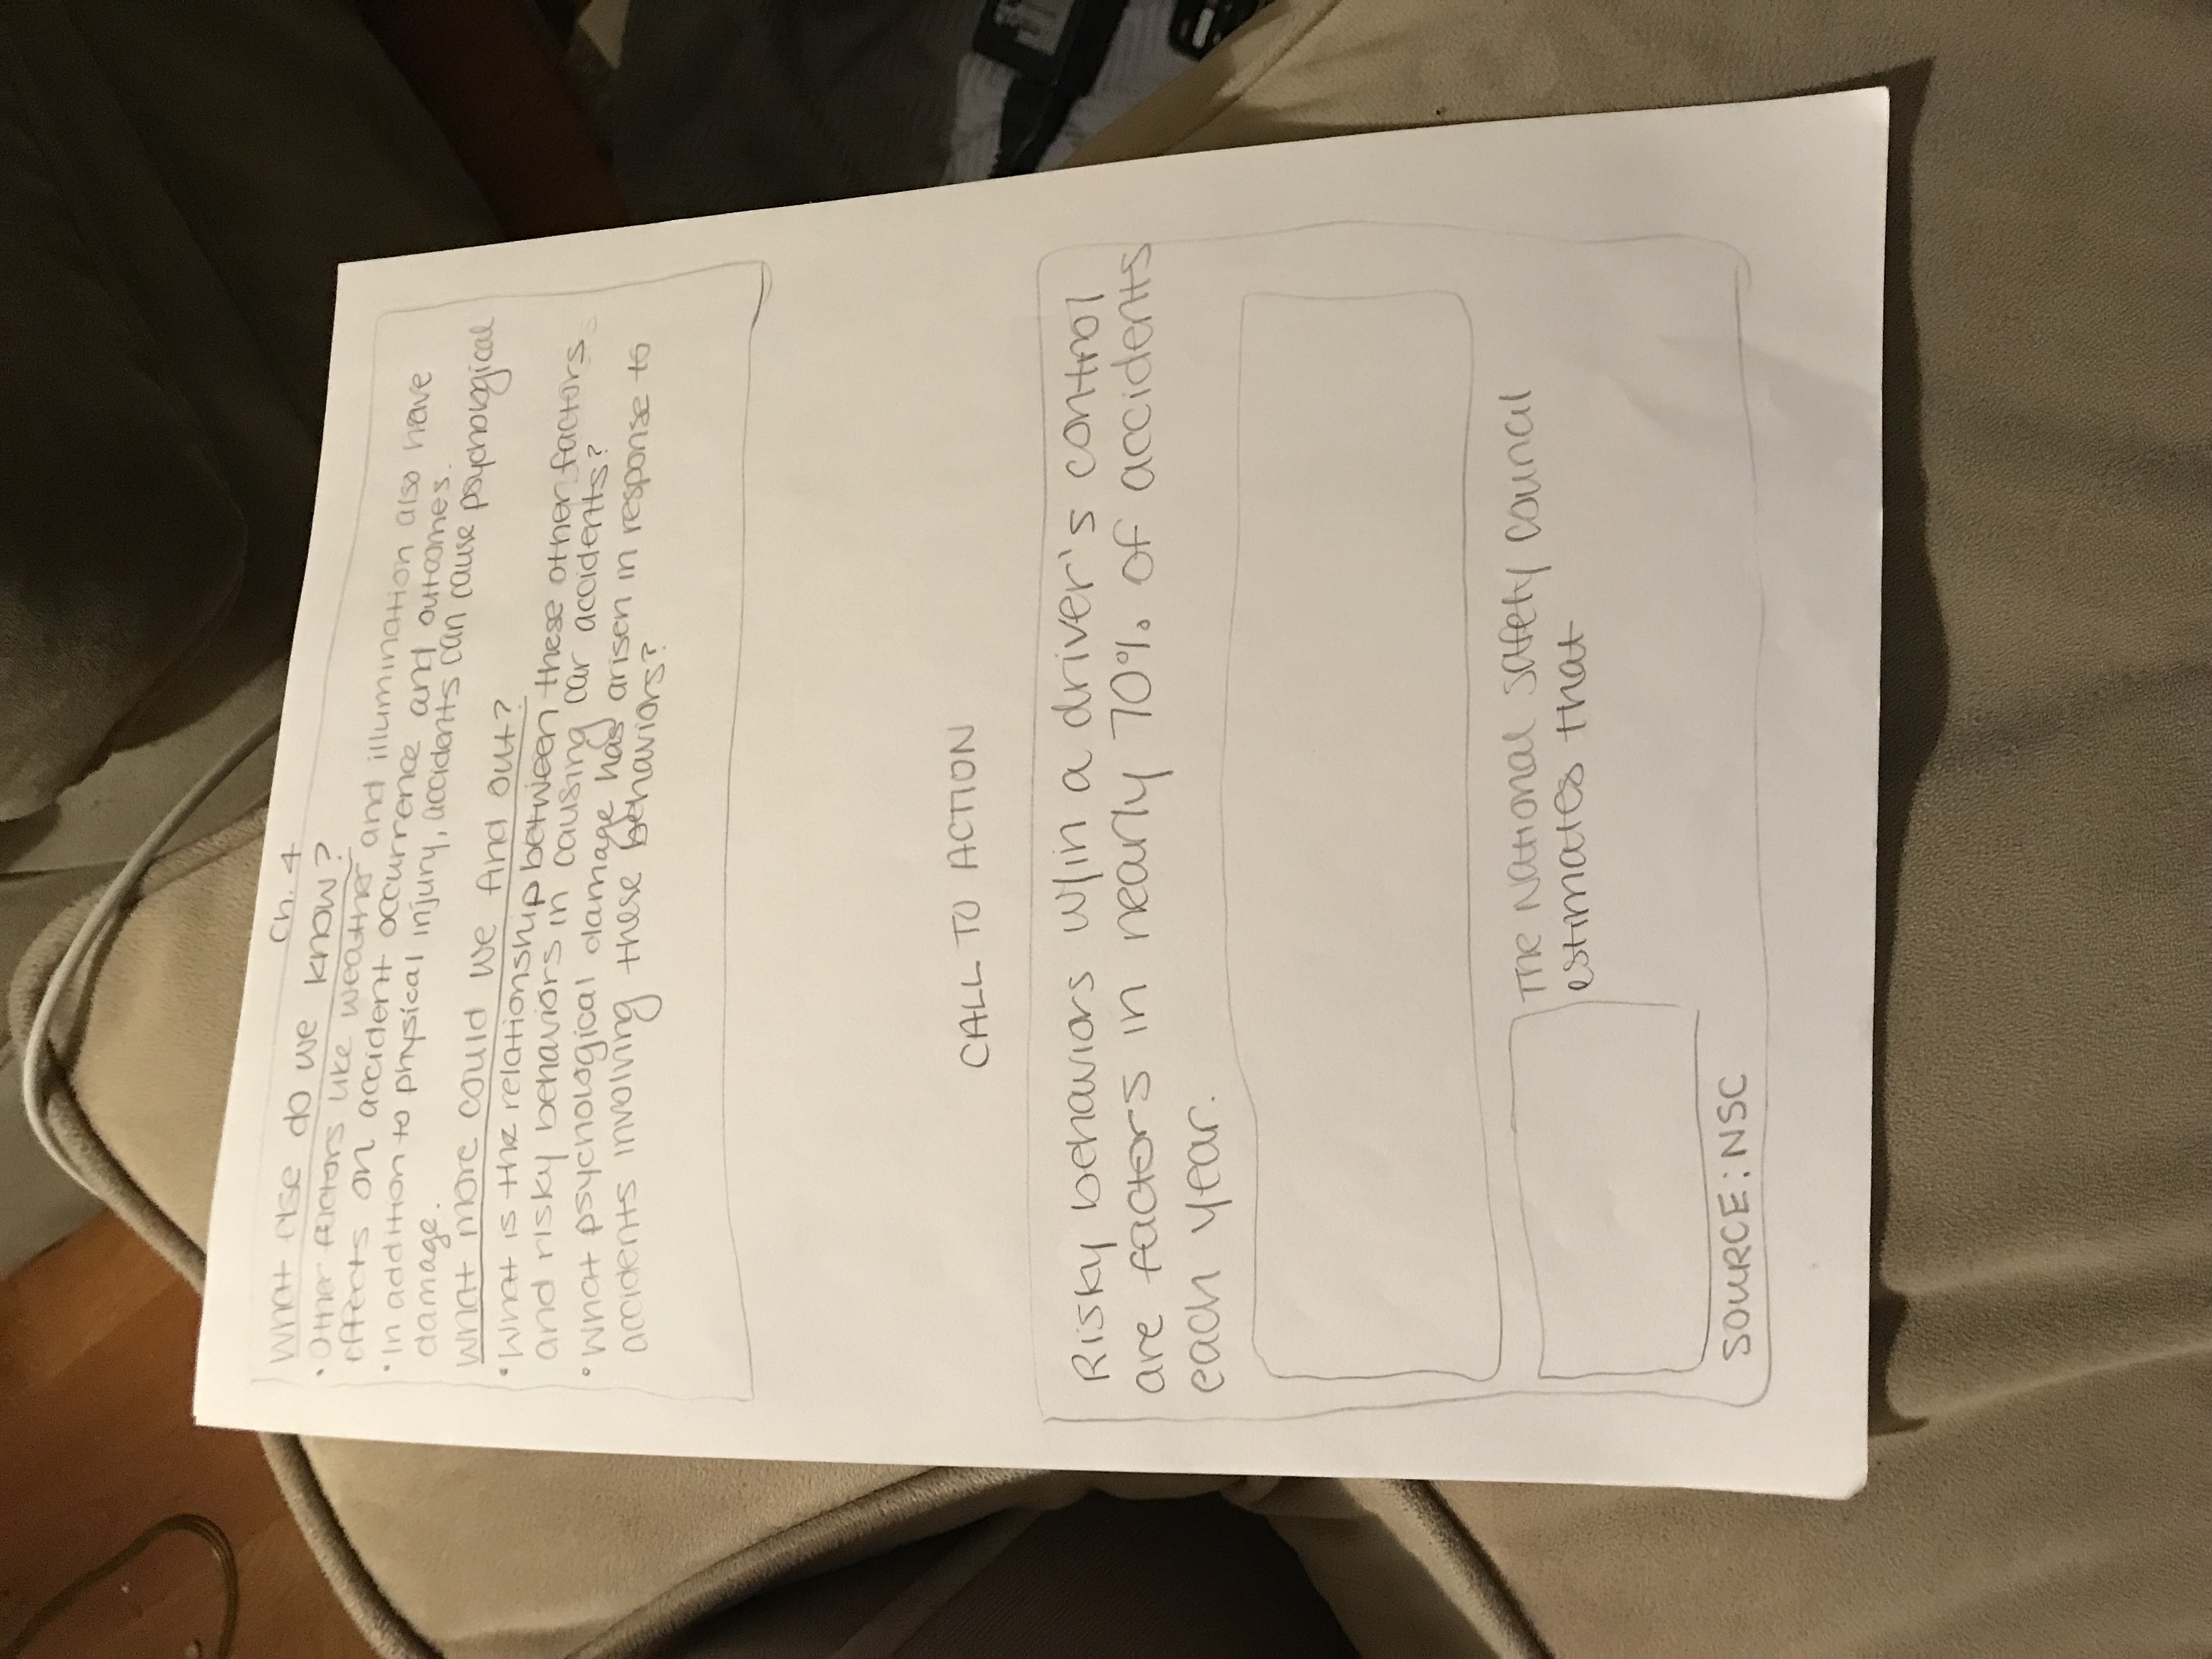 Ch. 4
What else do we know?
• Other factors like weather and illumination also have
effects on accident occurrence and outcomes.
• In addition to physical injury, accidents can cause psychological
damage.
What more could we find out?
• What is the relationship between these other factors
and risky behaviors in causing car accidents?
• What psychological damage has arisen in response to
accidents involving these behaviors?
CALL TO ACTION
Risky behaviors w/in a driver's control
are factors in nearly 70% of accidents
each year.
The National Safety Council
estimates that
SOURCE: NSC